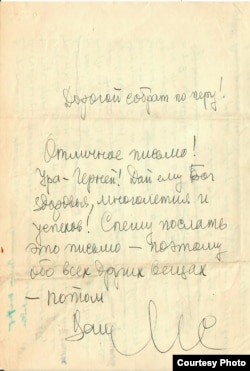 Дорогой собрат по перу!
Отличное письмо!
Ура – Герней! Дай ему Бог
здоровья, многолетия и
успехов! Спешу послать
это письмо – поэтому
обо всех других вещах
– потом
Ваш
Courtesy Photo